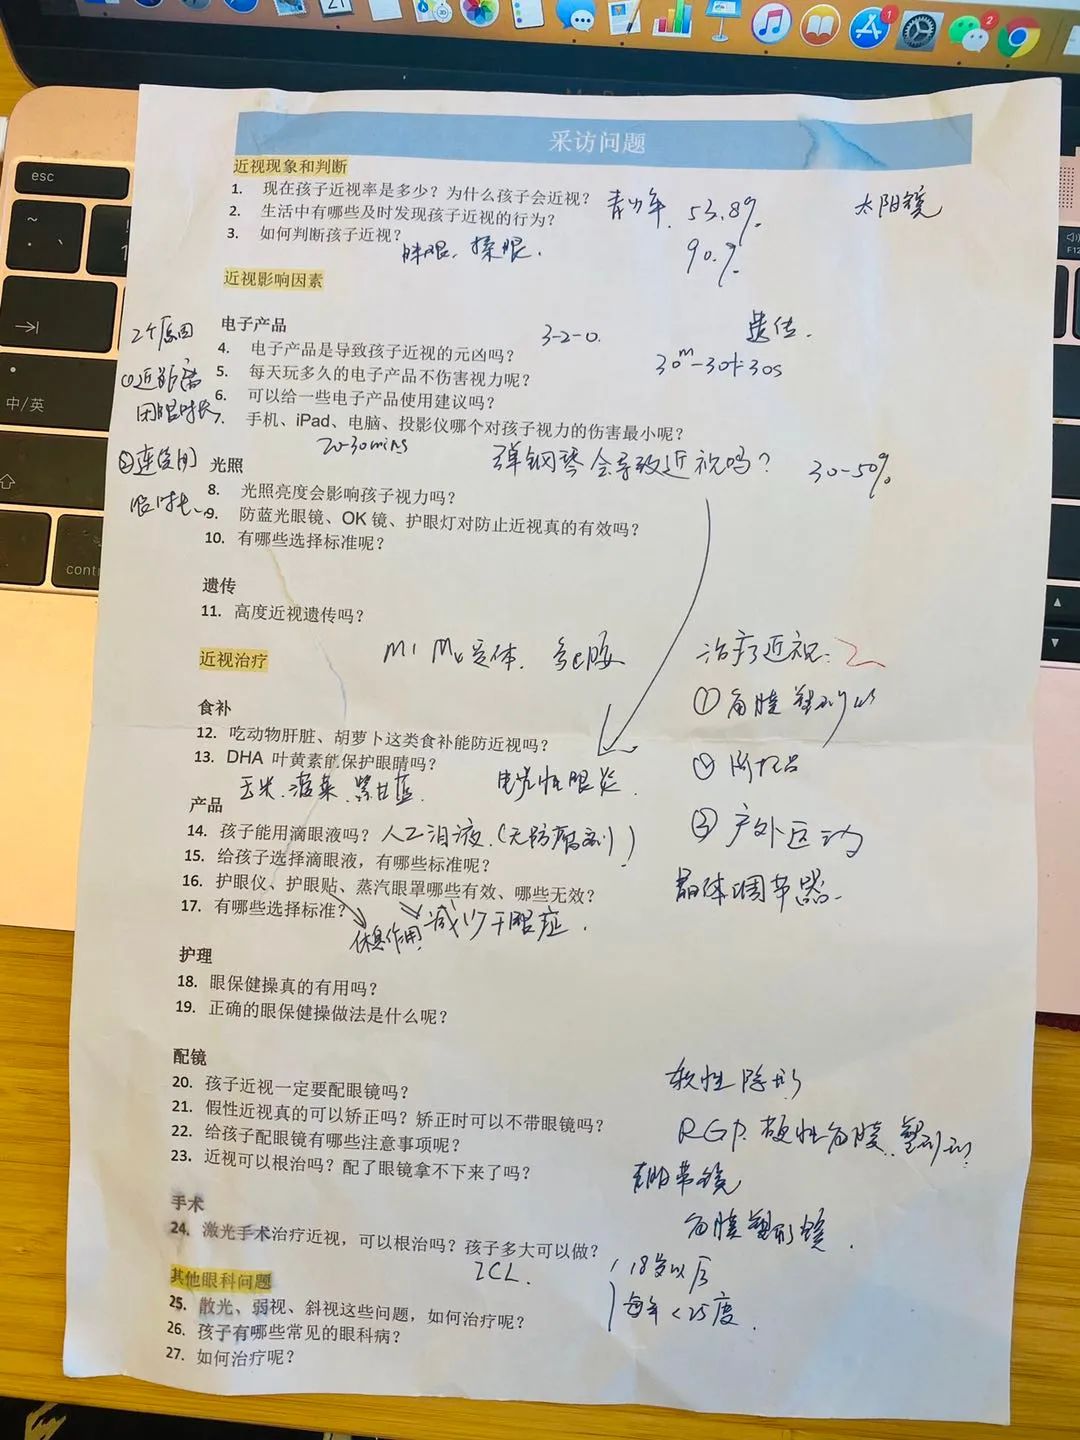 采访问题
近视现象和判断
1. 现在孩子近视率是多少？为什么孩子会近视？ 青少年 53.8%
太阳镜
2. 生活中有哪些及时发现孩子近视的行为？
3. 如何判断孩子近视？
眯眼、揉眼.
90.%
近视影响因素
2个原因
电子产品
3-2-0.
遗传.
4. 电子产品是导致孩子近视的元凶吗？
①近距离
用眼时长
5. 每天玩多久的电子产品不伤害视力呢？
6. 可以给一些电子产品使用建议吗？
7. 手机、iPad、电脑、投影仪哪个对孩子视力的伤害最小呢？
20-30mins
弹钢琴会导致近视吗？
30-50%
光照
8. 光照亮度会影响孩子视力吗？
9. 防蓝光眼镜、OK 镜、护眼灯对防止近视真的有效吗？
10. 有哪些选择标准呢？
遗传
11. 高度近视遗传吗？
近视治疗
治疗近视:
食补
12. 吃动物肝脏、胡萝卜这类食补能防近视吗？
13. DHA 叶黄素能保护眼睛吗？
玉米.菠菜.紫甘蓝.
电光性眼炎.
产品
14. 孩子能用滴眼液吗？ 人工泪液.(无防腐剂)
③户外运动
15. 给孩子选择滴眼液，有哪些标准呢？
16. 护眼仪、护眼贴、蒸汽眼罩哪些有效、哪些无效？
晶体调节器.
17. 有哪些选择标准？
休息作用
减少干眼症.
护理
18. 眼保健操真的有用吗？
19. 正确的眼保健操做法是什么呢？
配镜
软性隐形
20. 孩子近视一定要配眼镜吗？
21. 假性近视真的可以矫正吗？矫正时可以不带眼镜吗？
22. 给孩子配眼镜有哪些注意事项呢？
23. 近视可以根治吗？配了眼镜拿不下来了吗？
角膜塑形镜.
手术
24. 激光手术治疗近视，可以根治吗？孩子多大可以做？
ICL.
18岁以后
每年<25度.
其他眼科问题
25. 散光、弱视、斜视这些问题，如何治疗呢？
26. 孩子有哪些常见的眼科病？
27. 如何治疗呢？
esc
中/英